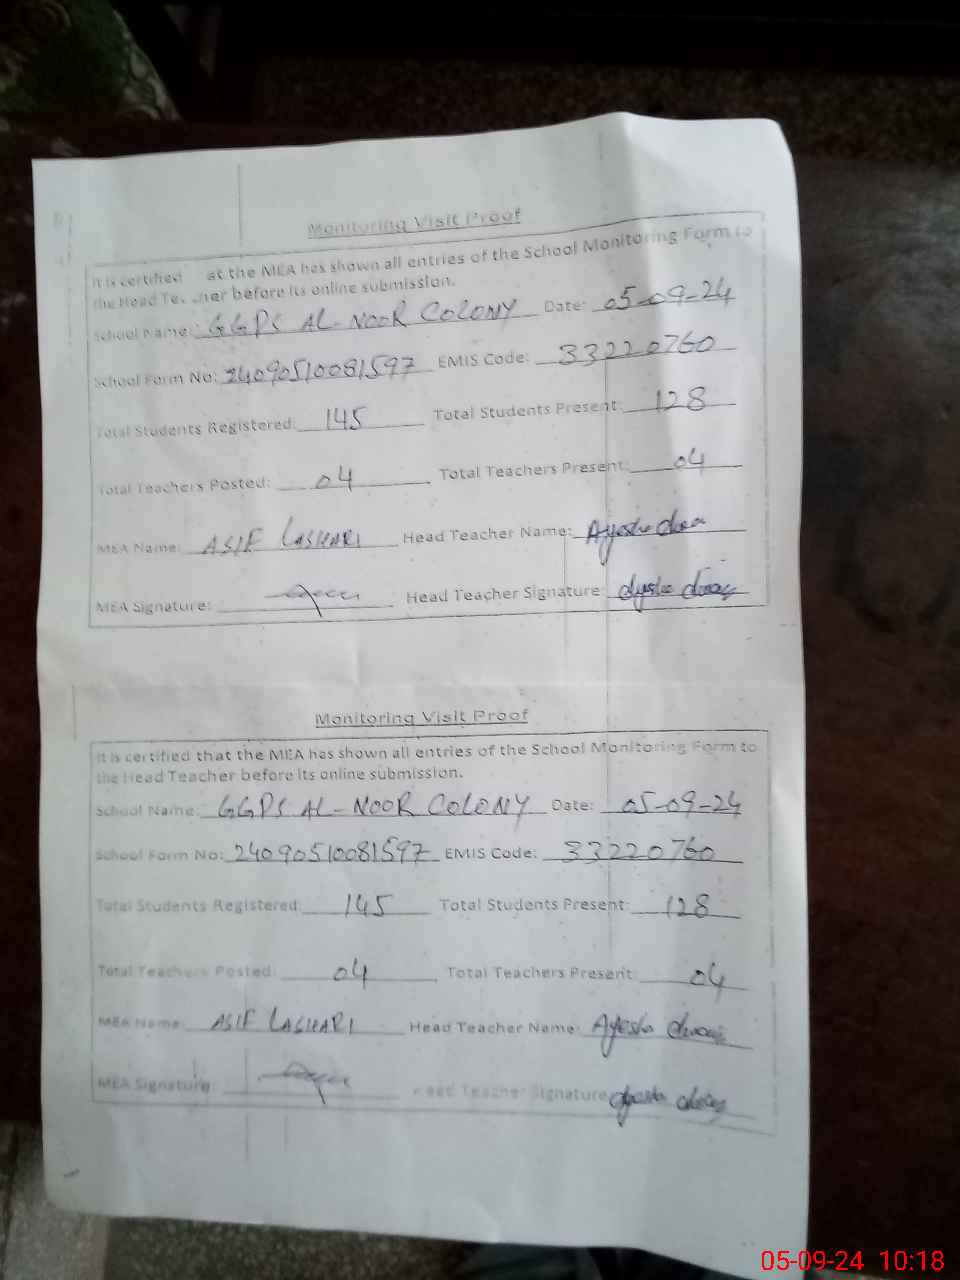 Monitoring Visit Proof
It is certified at the MEA has shown all entries of the School Monitoring Form to
the Head Te cher before its online submission.
School Name: GGPS AL-NOOR COLONY Date: 05-09-24
School Form No: 24090510081597 EMIS Code: 33220760
Total Students Registered: 145 Total Students Present: 128
Total Teachers Posted: 04 Total Teachers Present: 04
MEA Name: ASIF LASHARI Head Teacher Name: Ayesha
MEA Signature: Head Teacher Signature:
Monitoring Visit Proof
It is certified that the MEA has shown all entries of the School Monitoring Form to
the Head Teacher before its online submission.
School Name: GGPS AL-NOOR COLONY Date: 05-09-24
School Form No: 24090510081597 EMIS Code: 33220760
Total Students Registered: 145 Total Students Present: 128
Total Teachers Posted: 04 Total Teachers Present: 04
MEA Name: ASIF LASHARI Head Teacher Name: Ayesha
MEA Signature: Head Teacher Signature
05-09-24 10:18